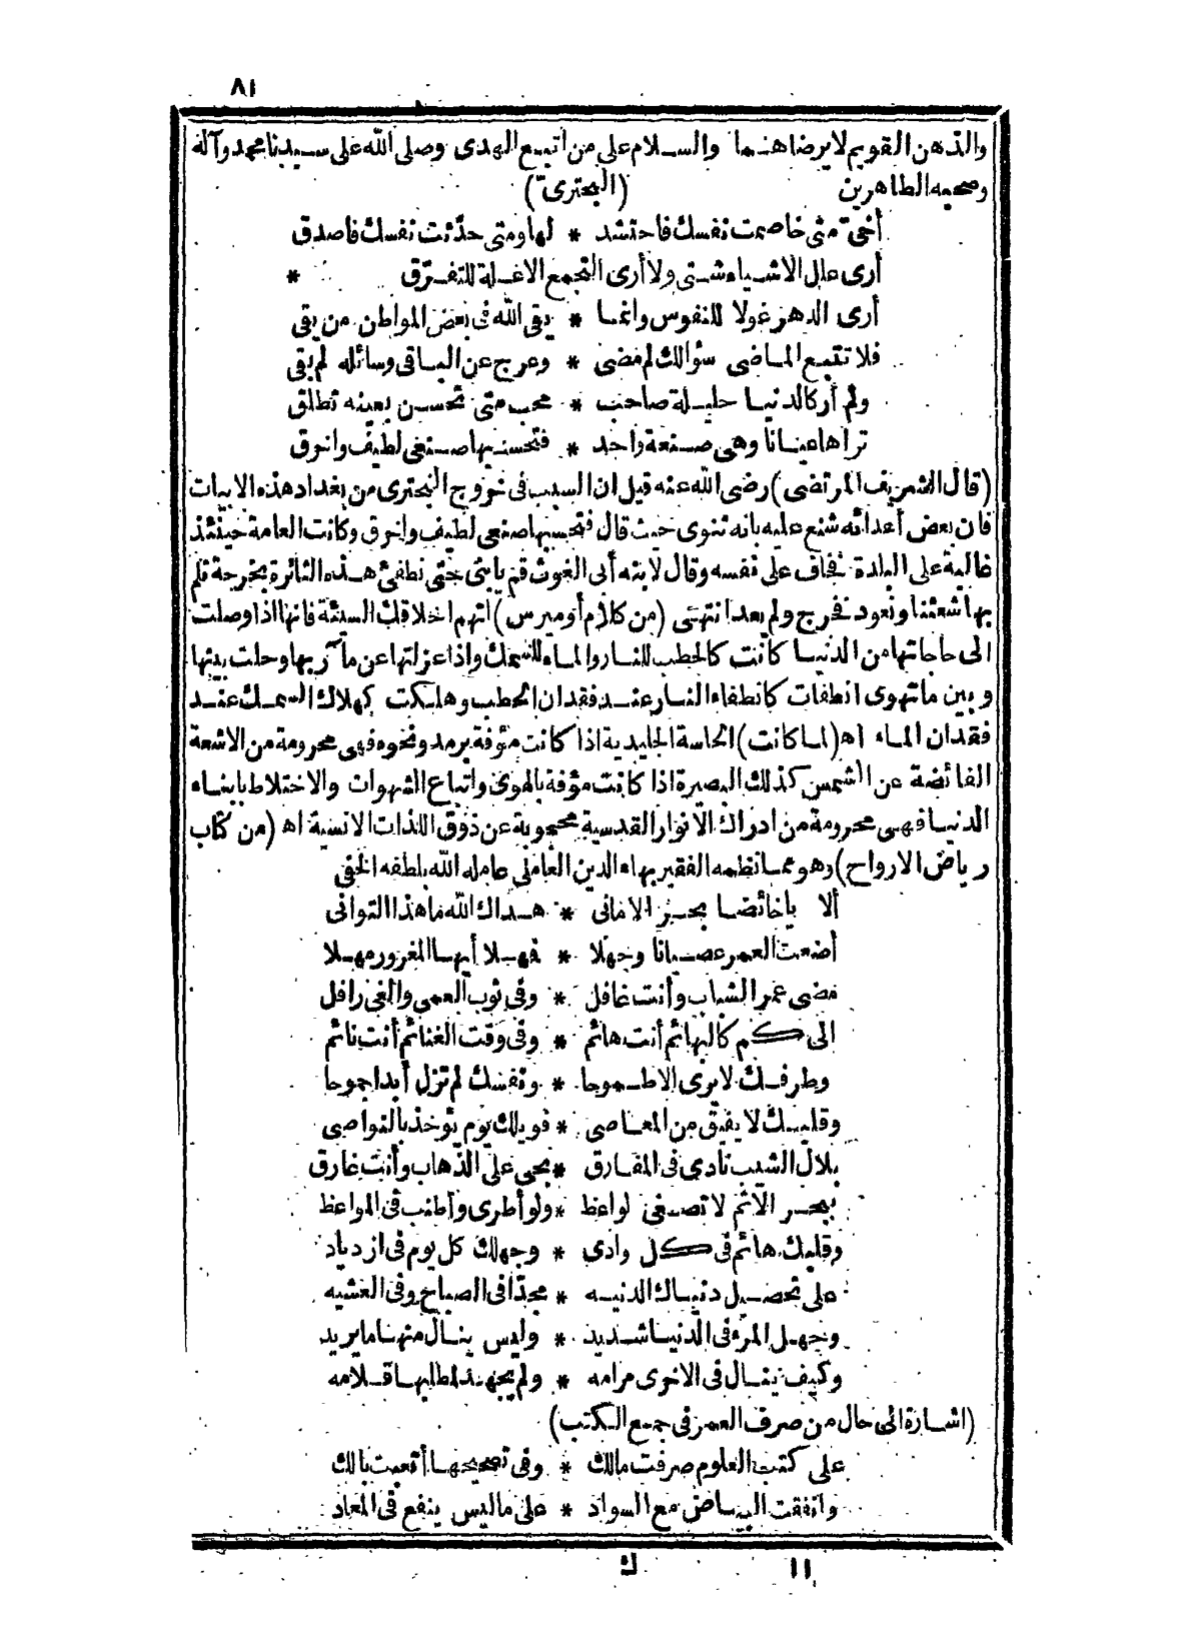 ٨١
والذهن القويم لا يرضاهما والسلام على من اتبع الهدى وصلى الله على سيدنا محمد وآله
وصحبه الطاهرين (البحترى)
أخى متى خاصمت نفسك فاحتشد * لها ومتى حدّثت نفسك فاصدق
أرى علل الاشياء شتى ولا أرى التجمع الاعلة للتفرّق *
أرى الدهر غولا للنفوس وانما * يقى الله فى بعض المواطن من يقى
فلا تتبع الماضى سؤالك لم مضى * وعرج عن الباقى وسائله لم بقى
ولم أر كالدنيا حليلة صاحب * محب متى تحسن بعينه تطلق
تراها عيانا وهى صنعة واحد * فتحسبها صنعى لطيف واخرق
(قال الشريف المرتضى) رضى الله عنه قيل ان السبب فى خروج البحترى من بغداد هذه الابيات
فان بعض أعدائه شنع عليه بانه ثنوى حيث قال فتحسبها صنعى لطيف واخرق وكانت العامة حينئذ
غالبة على البلدة فخاف على نفسه وقال لابنه أبى الغوث قم يا بنى حتى نطفئ هذه الثائرة بخرجة نلم
بها شعثنا ونعود فخرج ولم يعد انتهى (من كلام أوميرس) اتهم اخلاقك السيئة فانها اذا وصلت
الى حاجاتها من الدنيا كانت كالحطب للنار والماء للسمك واذا عزلتها عن مآربها وحلت بينها
وبين ما تهوى انطفات كانطفاء النار عند فقدان الحطب وهلكت كهلاك السمك عند
فقدان الماء اه (لما كانت) الحاسة الجليدية اذا كانت مؤفة برمد ونحوه فهى محرومة من الاشعة
الفائضة عن الشمس كذلك البصيرة اذا كانت مؤفة بالهوى واتباع الشهوات والاختلاط بابناء
الدنيا فهى محرومة من ادراك الانوار القدسية محجوبة عن ذوق اللذات الانسية اه (من كتاب
رياض الارواح) وهو مما نظمه الفقير بهاء الدين العاملى عامله الله بلطفه الخفى
ألا يا خائضا بحر الامانى * هداك الله ما هذا التوانى
أضعت العمر عصيانا وجهلا * فهلا أيها المغرور مهلا
مضى عمر الشباب وأنت غافل * وفى ثوب العمى والغى رافل
الى كم كالبهائم أنت هائم * وفى وقت الغنائم أنت نائم
وطرفك لا يرى الاطموحا * ونفسك لم تزل أبدا جموحا
وقلبك لا يفيق من المعاصى * فويلك يوم يوخذ بالنواصى
بلال الشيب نادى فى المفارق * بحى على الذهاب وأنت غارق
ببحر الاثم لا تصغى لواعظ * ولو أطرى وأطنب فى المواعظ
وقلبك هائم فى كل وادى * وجهلك كل يوم فى ازدياد
على تحصيل دنياك الدنيه * مجدّا فى الصباح وفى العشيه
وجهل المرء فى الدنيا شديد * وليس ينال منها ما يريد
وكيف ينال فى الاخرى مرامه * ولم يجهد لمطلبها قلامه
(اشارة الى حال من صرف العمر فى جمع الكتب)
على كتب العلوم صرفت مالك * وفى تصحيحها أتعبت بالك
وانفقت البياض مع السواد * على ما ليس ينفع فى المعاد
١١ ك